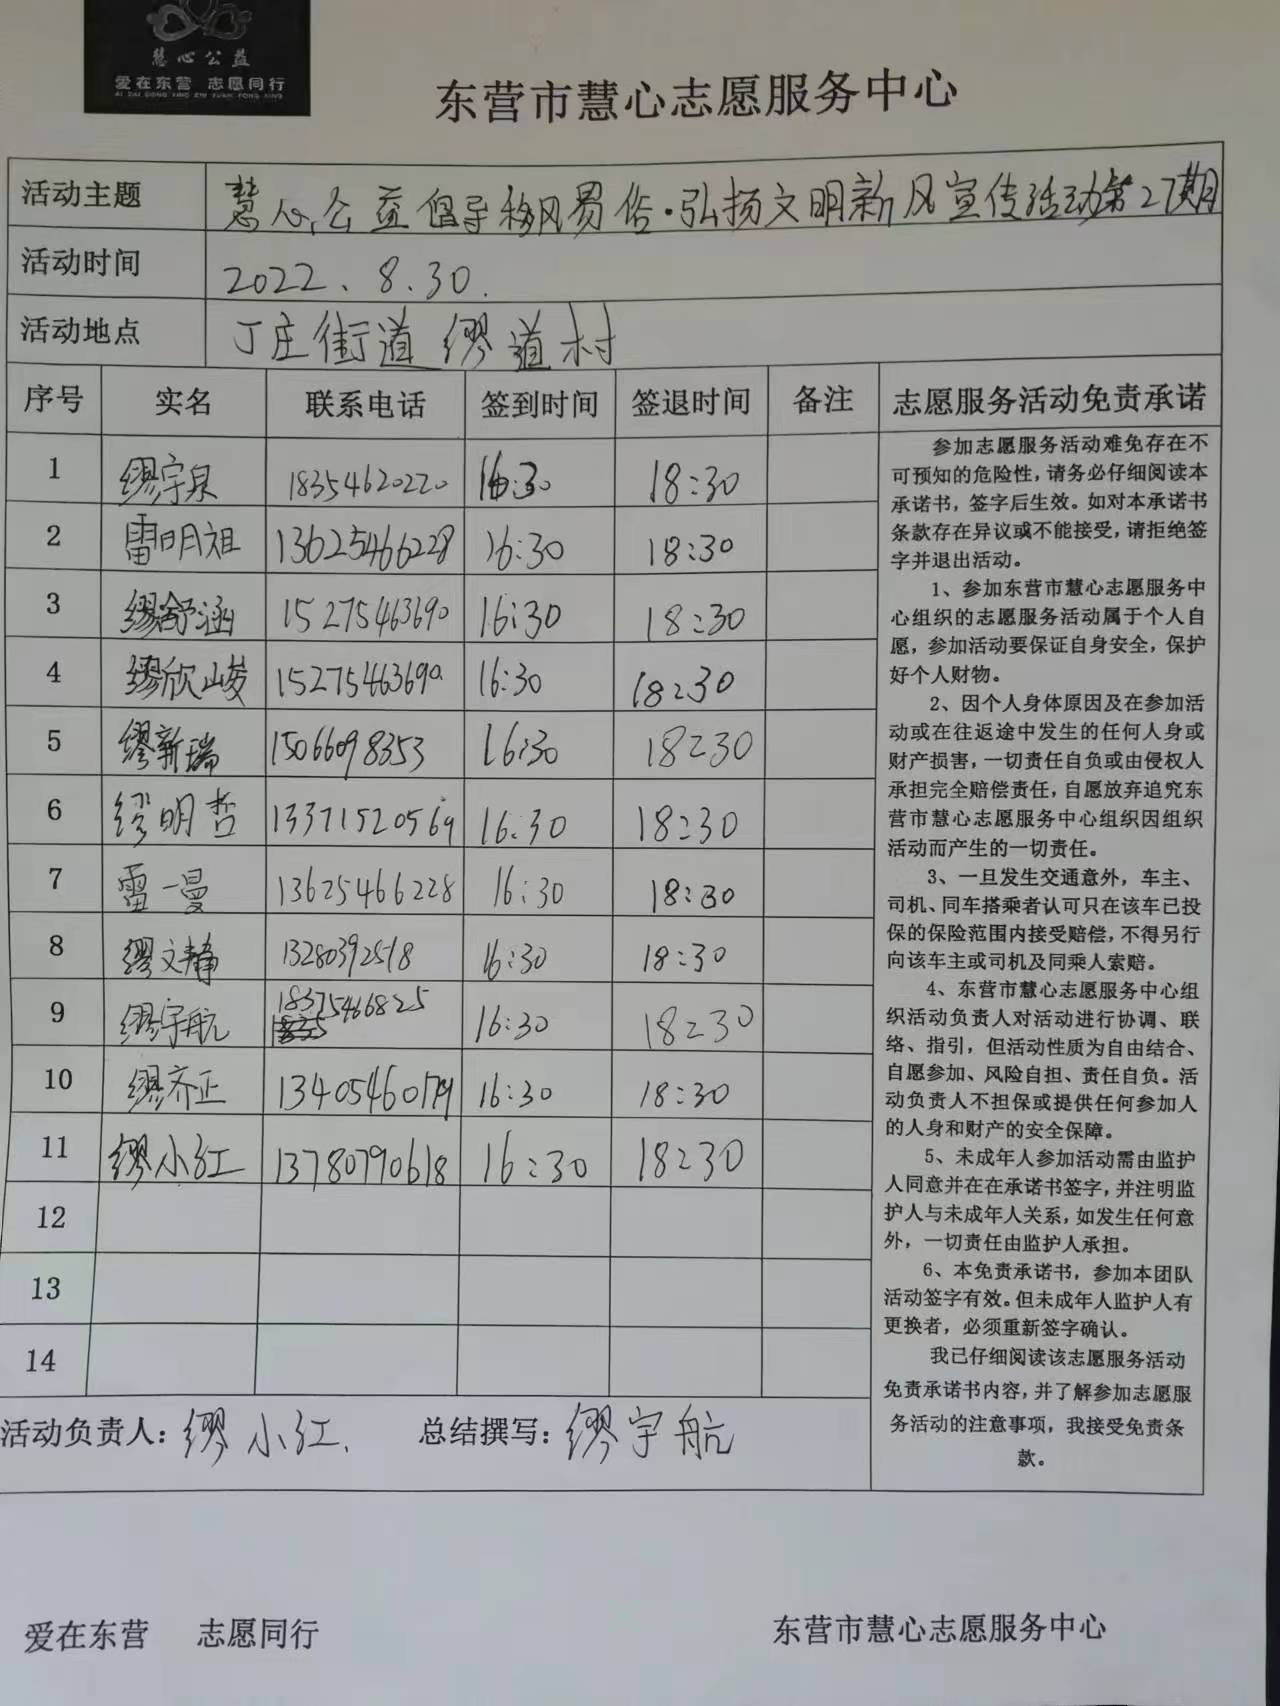 慧心公益
爱在东营 志愿同行
AI ZAI DONG YING ZHI YUAN TONG XING
东营市慧心志愿服务中心
活动主题 慧心公益倡导移风易俗·弘扬文明新风宣传活动第27期
活动时间 2022、8.30.
活动地点 丁庄街道缪道村
序号 实名 联系电话 签到时间 签退时间 备注 志愿服务活动免责承诺
1 缪宇泉 18354620220 16:30 18:30
2 雷明祖 13625466228 16:30 18:30
3 缪舒涵 15275463690 16:30 18:30
4 缪欣峻 15275463690 16:30 18:30
5 缪新瑞 15066098353 16:30 18:30
6 缪明哲 13371520569 16:30 18:30
7 雷一曼 13625466228 16:30 18:30
8 缪文静 13280392518 16:30 18:30
9 缪宇航 18375466825 16:30 18:30
10 缪齐正 16:30 18:30
11 缪小红 13780790618 16:30 18:30
12
13
14
参加志愿服务活动难免存在不
可预知的危险性，请务必仔细阅读本
承诺书，签字后生效。如对本承诺书
条款存在异议或不能接受，请拒绝签
字并退出活动。
1、参加东营市慧心志愿服务中
心组织的志愿服务活动属于个人自
愿，参加活动要保证自身安全，保护
好个人财物。
2、因个人身体原因及在参加活
动或在往返途中发生的任何人身或
财产损害，一切责任自负或由侵权人
承担完全赔偿责任，自愿放弃追究东
营市慧心志愿服务中心组织因组织
活动而产生的一切责任。
3、一旦发生交通意外，车主、
司机、同车搭乘者认可只在该车已投
保的保险范围内接受赔偿，不得另行
向该车主或司机及同乘人索赔。
4、东营市慧心志愿服务中心组
织活动负责人对活动进行协调、联
络、指引，但活动性质为自由结合、
自愿参加、风险自担、责任自负。活
动负责人不担保或提供任何参加人
的人身和财产的安全保障。
5、未成年人参加活动需由监护
人同意并在在承诺书签字，并注明监
护人与未成年人关系，如发生任何意
外，一切责任由监护人承担。
6、本免责承诺书，参加本团队
活动签字有效。但未成年人监护人有
更换者，必须重新签字确认。
我已仔细阅读该志愿服务活动
免责承诺书内容，并了解参加志愿服
务活动的注意事项，我接受免责条
款。
活动负责人：缪小红. 总结撰写：缪宇航
爱在东营 志愿同行 东营市慧心志愿服务中心